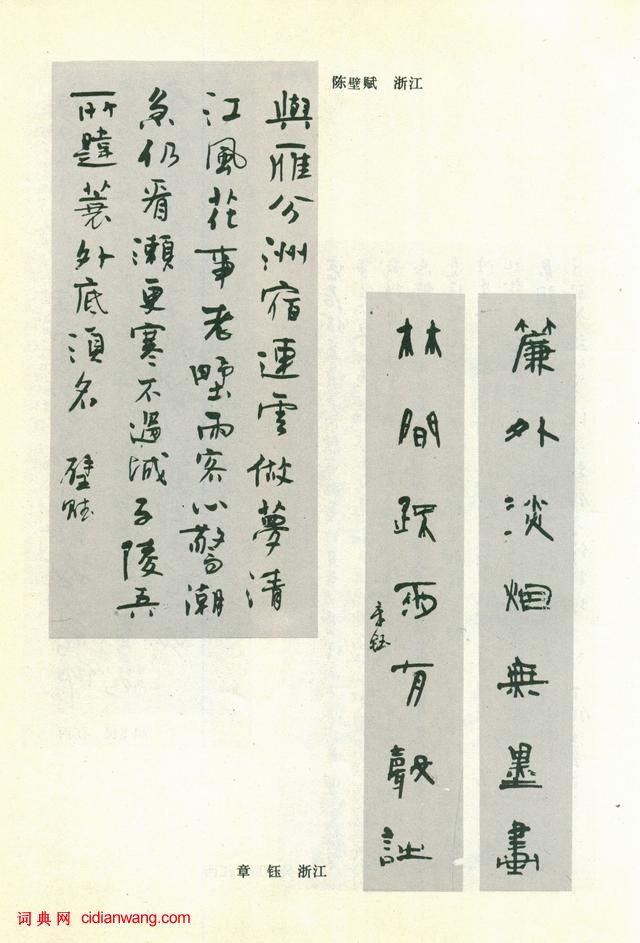 陈壁赋 浙江
與雁分洲宿連雲做夢清
江風花事老野雨客心驚潮
急仍看瀨更寒不過城子陵
所韙蓑外底須名 壁賦
簾外淡烟無墨畫
林間疎雨有聲詩
章鈺
章 钰 浙江
词典网 cidianwang.com